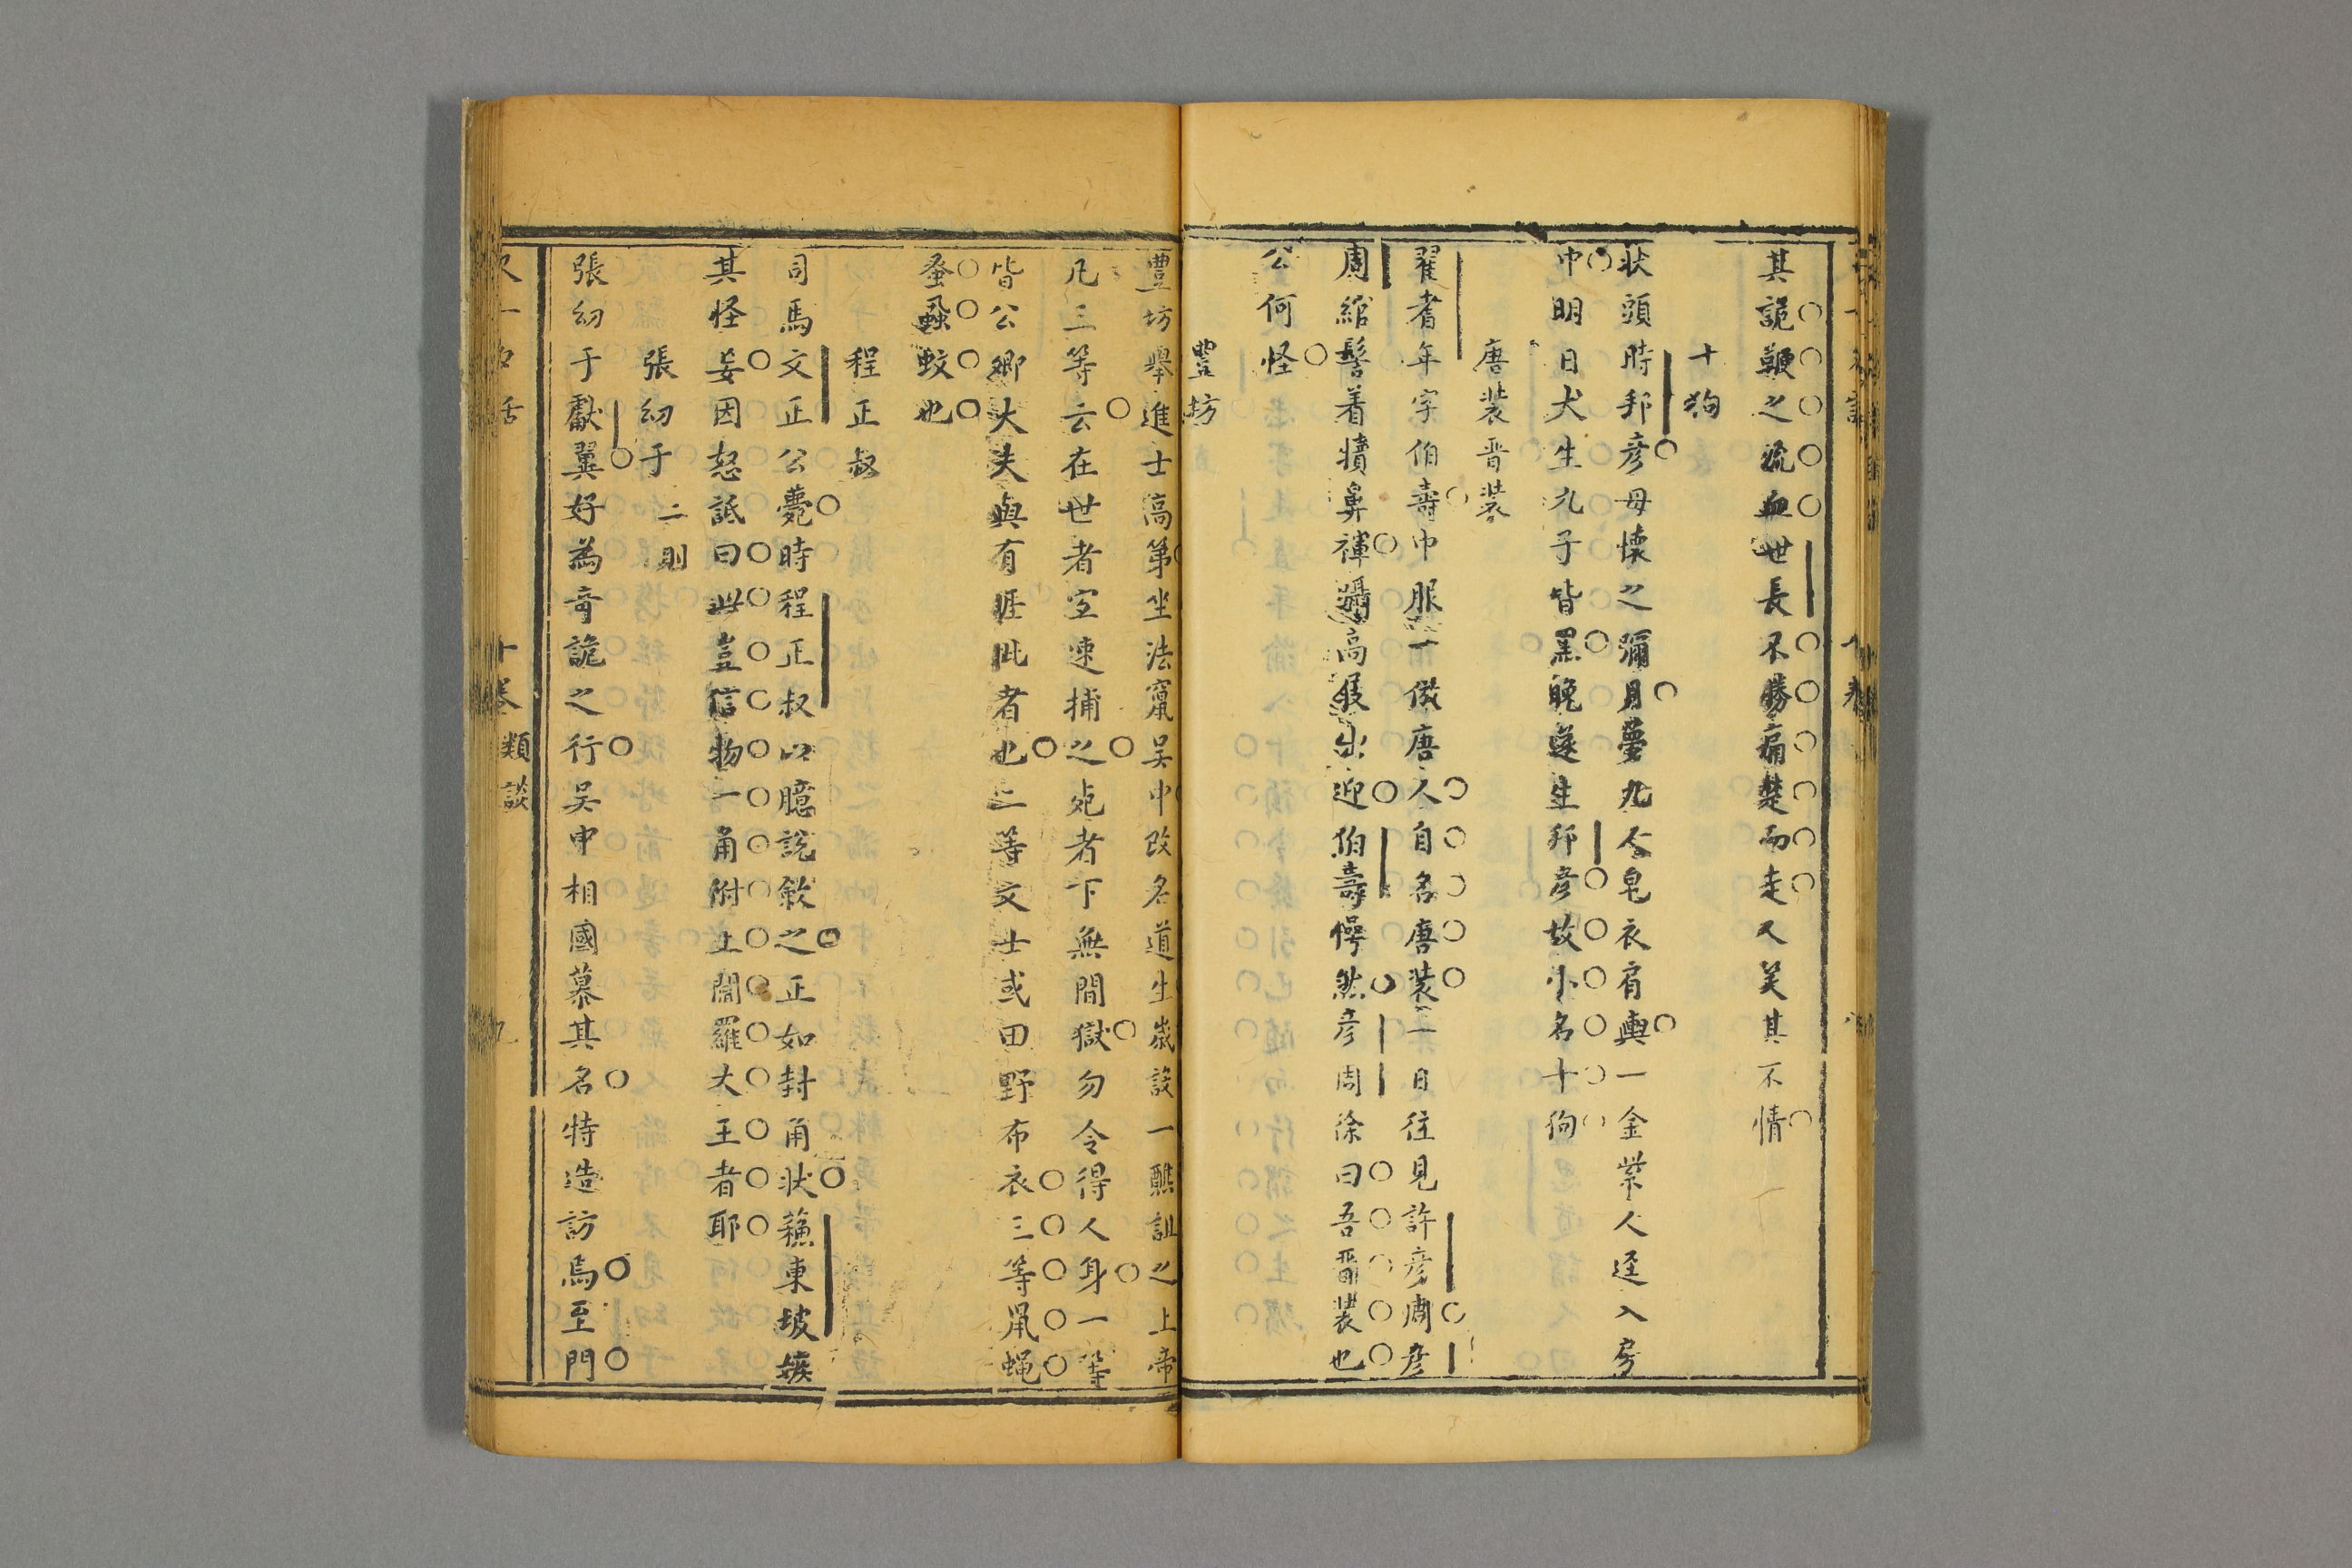 其詭鞭之流血世長不勝痛楚而走又笑其不情
十狗
狀頭時邦彦母懷之彌月夢九人皂衣肩輿一金紫人逕入房
中明日犬生九子皆黑晚遂生邦彦故小名十狗
唐裝晋裝
翟耆年字伯壽巾服一倣唐人自名唐裝一日往見許彦周彦
周綰髻着犢鼻褌躡高屐出迎伯壽愕然彦周徐曰吾晋裝也
公何怪
豐坊
豐坊舉進士高第坐法竄吴中改名道生嵗設一醮詛之上帝
凡三等云在世者宜速捕之死者下無間獄勿令得人身一等
皆公卿大夫與有睚眦者也二等文士或田野布衣三等鼠蝇
蚤蝨蚊也
程正叔
司馬文正公薨時程正叔以臆説斂之正如封角状蘓東坡嫉
其怪妄因怒詆曰此豈信物一角附上閻羅大王者耶
張幼于 二則
張幼于獻翼好為奇詭之行吴中相國慕其名特造訪焉至門
十卷 類談 九